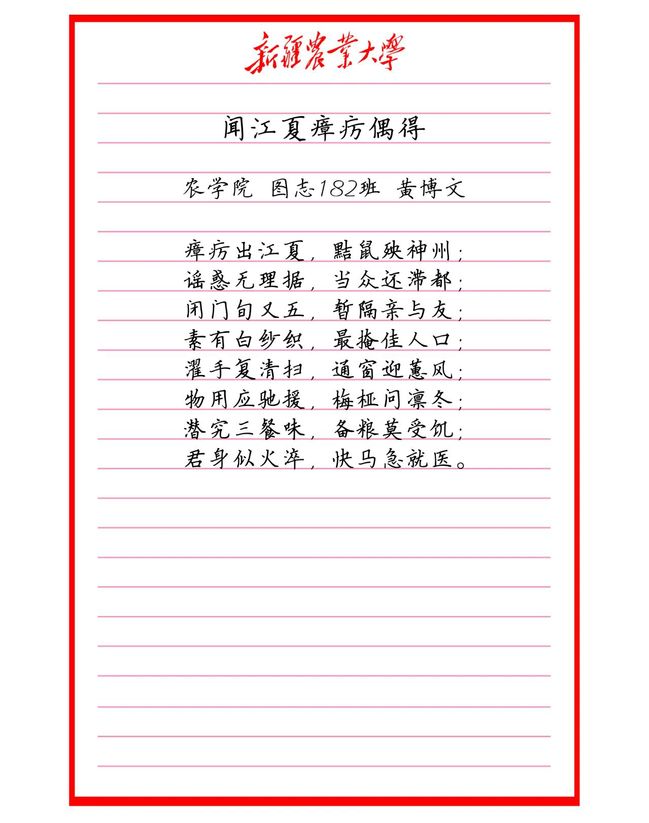 新疆農業大學
闻江夏瘴疠偶得
农学院 图志182班 黄博文
瘴疠出江夏，黠鼠殃神州；
谣惑无理据，当众还滞都；
闭门旬又五，暂隔亲与友；
素有白纱织，最掩佳人口；
濯手复清扫，通窗迎蕙风；
物用应驰援，梅桠问凛冬；
潜究三餐味，备粮莫受饥；
君身似火淬，快马急就医。